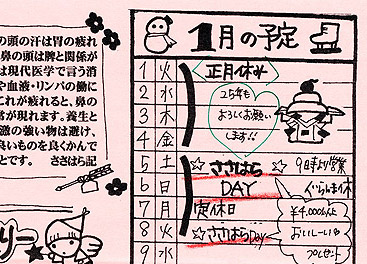 の頭の汗は胃の疲れ
鼻の頭は脾と関係が
は現代医学で言う消
や血液・リンパの働に
これが疲れると、鼻の
常が現れます。養生と
激の強い物は避け、
良いものを良くかんで
とです。 ささはら記
リー
1月の予定
1 火 正月休み
2 水 25年も
3 木 よろしくお願い
4 金 します!!
5 土 ☆ささはら☆ 9日まで営業
6 日 DAY
7 月 定休日 ¥4,000以上
8 火 ☆ささはらDay おいしい
9 水 プレゼント